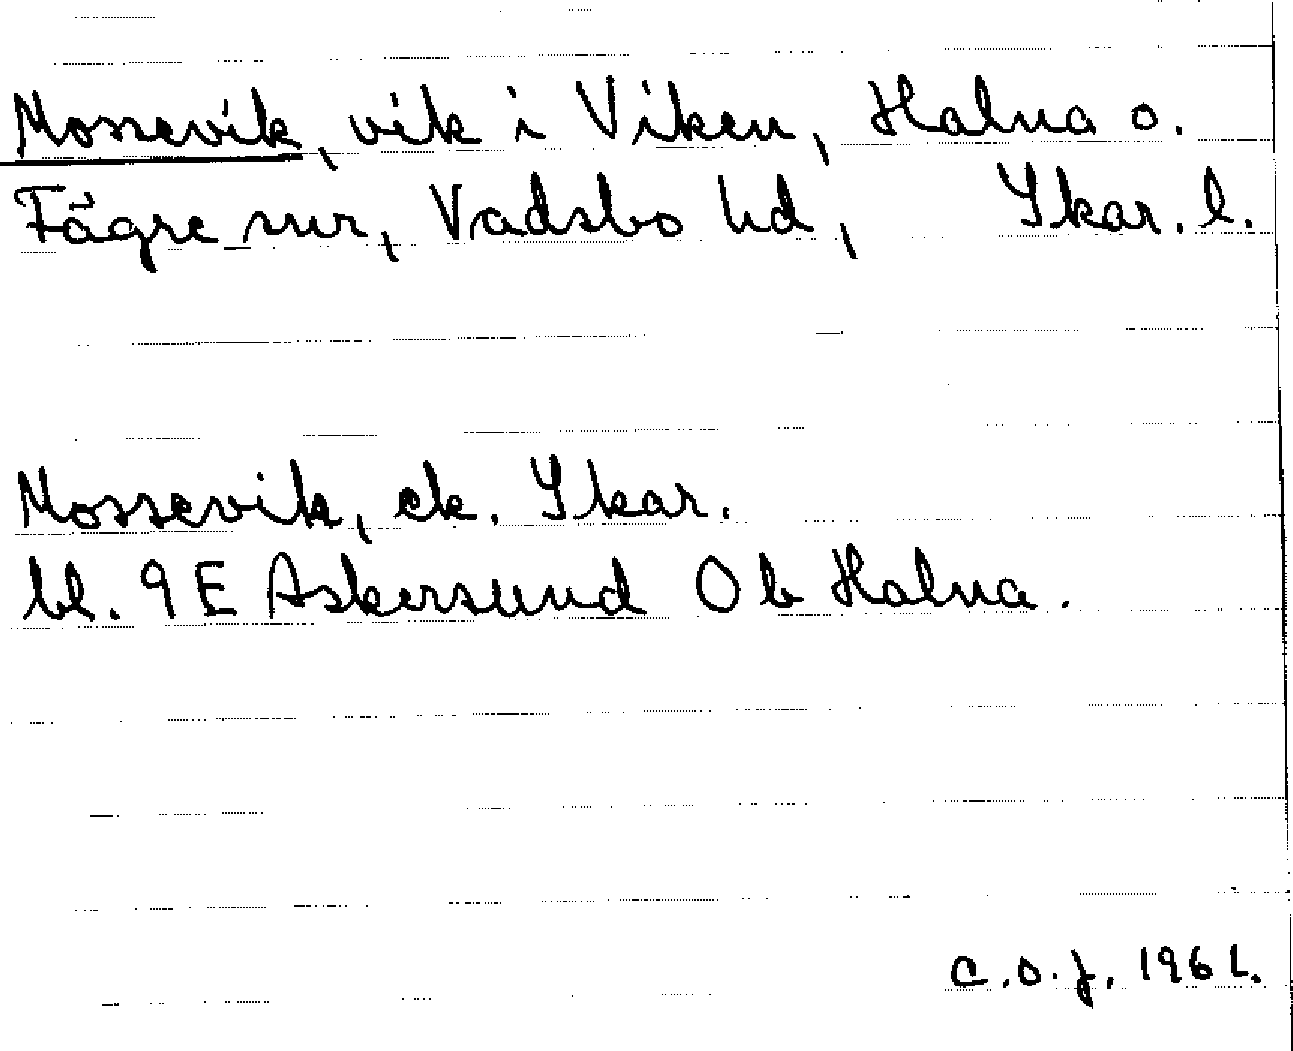 Mossevik, vik i Viken, Halna o.
Fägre snr, Vadsbo hd, Skar. l.
Mossevik, ek. Skar.
bl. 9E Askersund Ob Halna.
C.O.J. 1961.